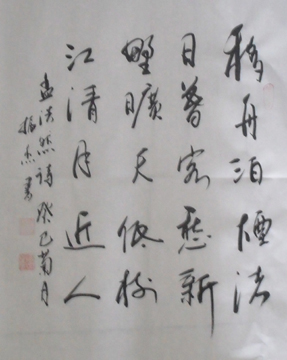 移舟泊煙渚
日暮客愁新
野曠天低樹
江清月近人
孟浩然詩癸巳菊月
振杰書